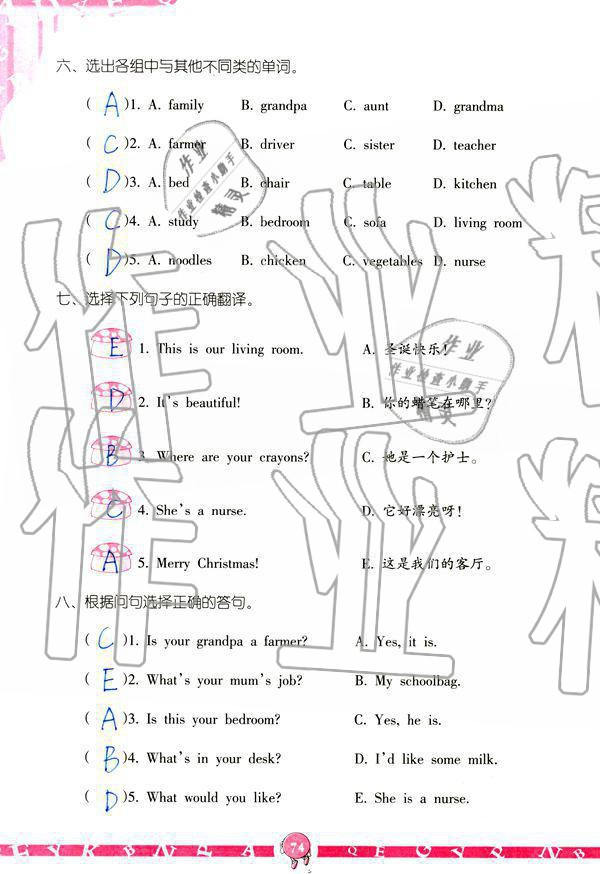 六、选出各组中与其他不同类的单词。
( A )1. A. family B. grandpa C. aunt D. grandma
( C )2. A. farmer B. driver C. sister D. teacher
( D )3. A. bed B. chair C. table D. kitchen
( C )4. A. study B. bedroom C. sofa D. living room
( D )5. A. noodles B. chicken C. vegetables D. nurse
七、选择下列句子的正确翻译。
E 1. This is our living room. A. 圣诞快乐!
D 2. It's beautiful! B. 你的蜡笔在哪里?
B 3. Where are your crayons? C. 她是一个护士。
C 4. She's a nurse. D. 它好漂亮呀!
A 5. Merry Christmas! E. 这是我们的客厅。
八、根据问句选择正确的答句。
( C )1. Is your grandpa a farmer? A. Yes, it is.
( E )2. What's your mum's job? B. My schoolbag.
( A )3. Is this your bedroom? C. Yes, he is.
( B )4. What's in your desk? D. I'd like some milk.
( D )5. What would you like? E. She is a nurse.
74
作业
作业检查小助手
精灵
作业
作业检查小助手
精灵
作业精
作业精